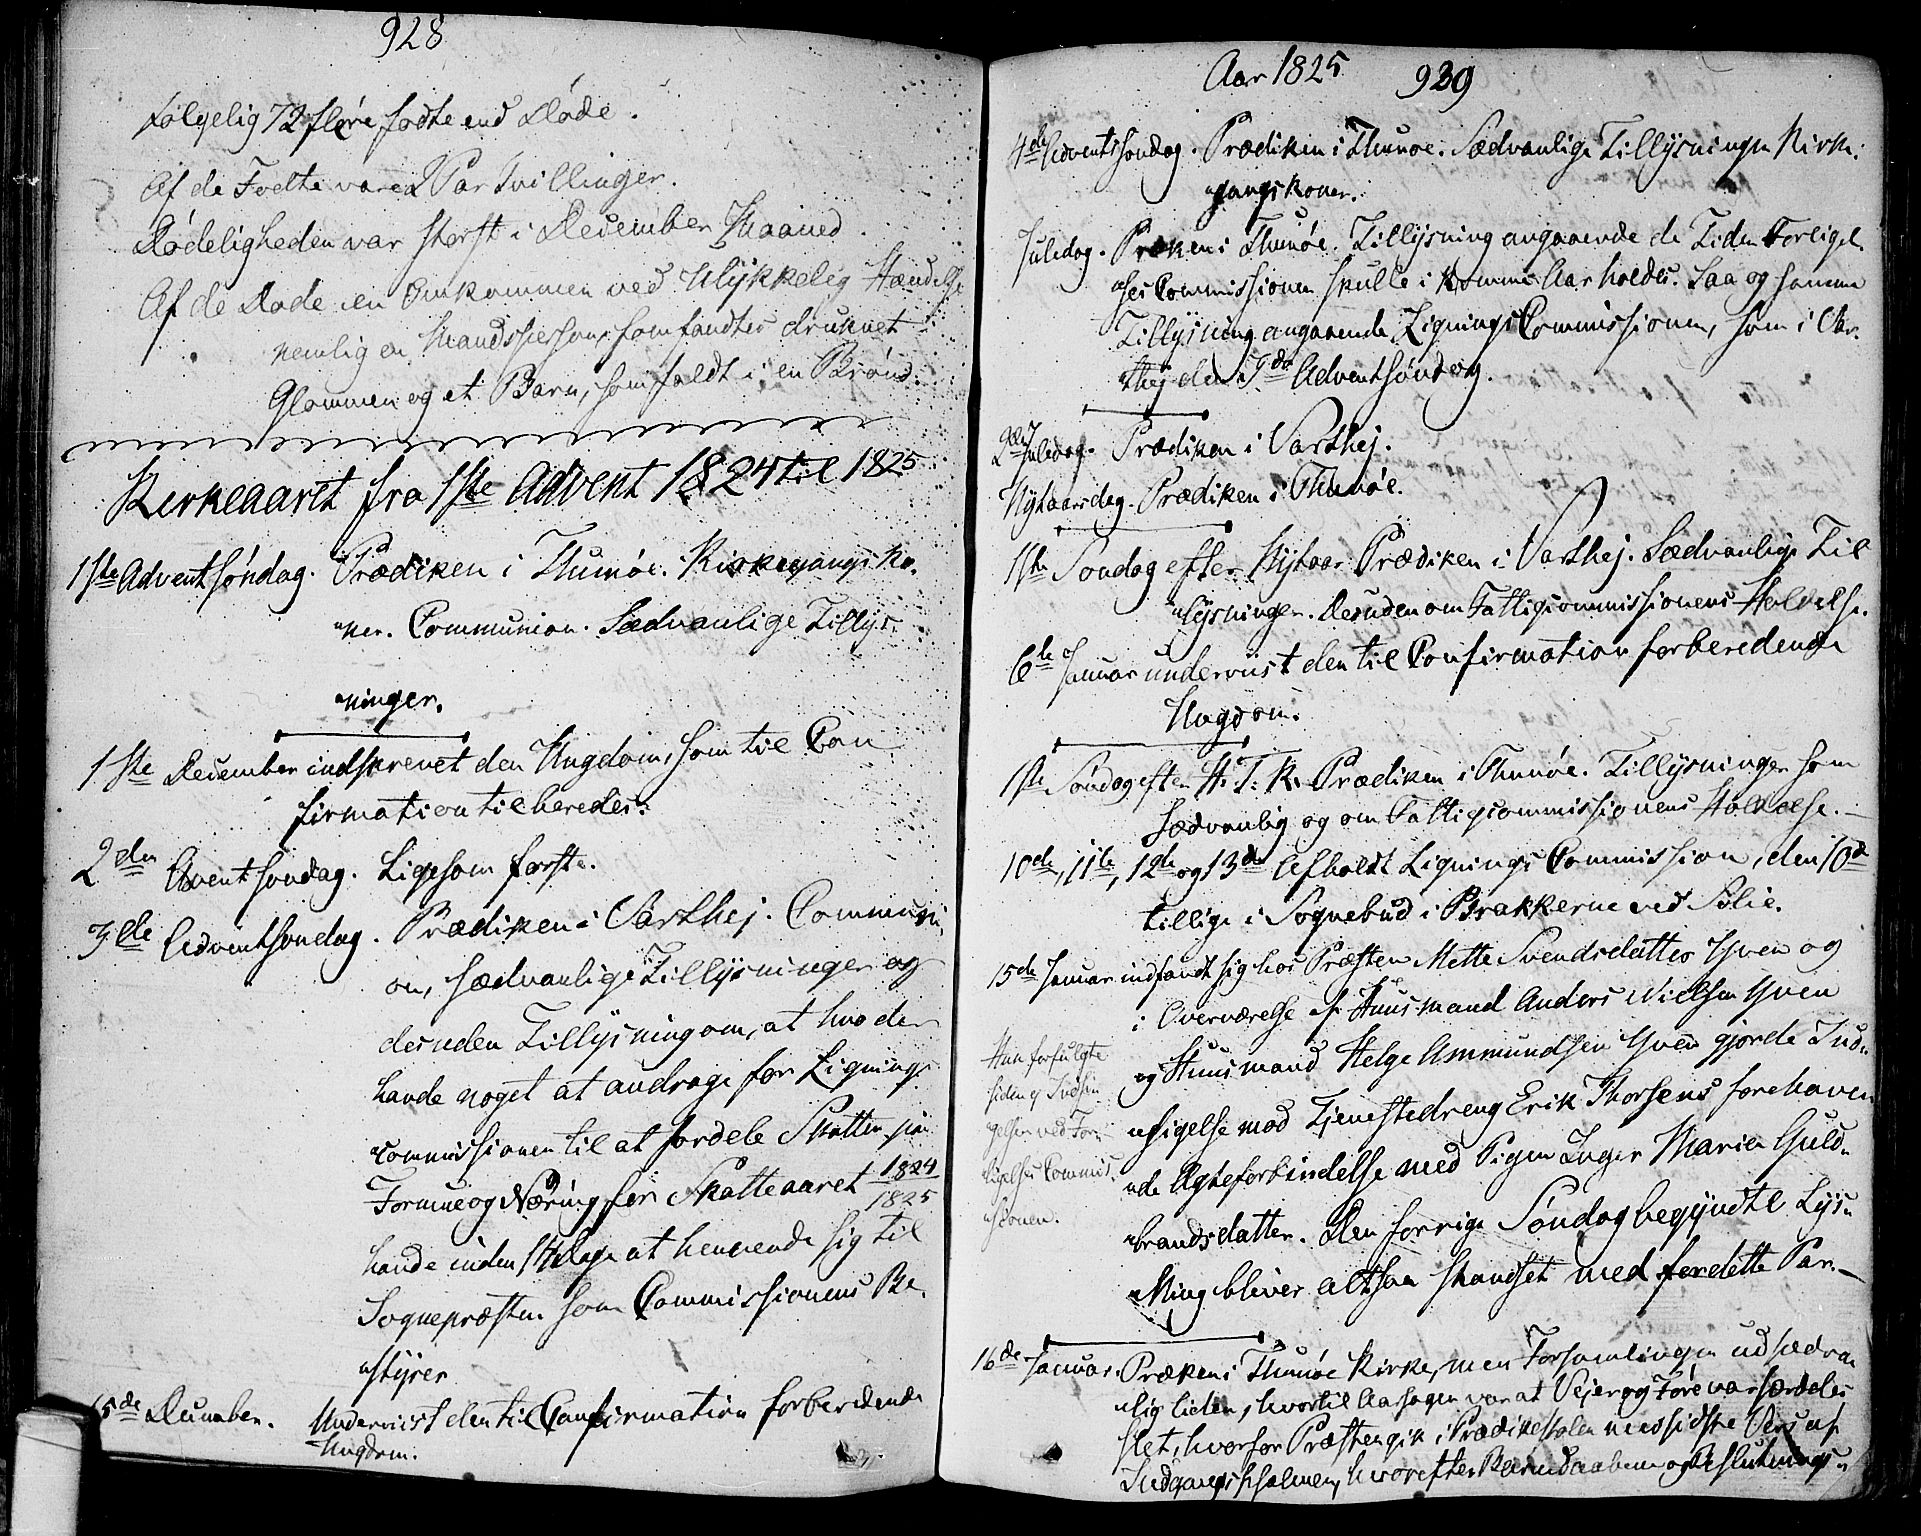 928
følgelig 72 flere fødte end Døde.
Af de Fødte vare 2 Par Tvillinger.
Dødeligheden var størst i December Maaned.
Af de Døde en Omkommen ved Ulykkelig Hændelse
nemlig en Mandsperson, som fandtes druknet i
Glommen og et Barn, som faldt i en Brønd.
Kirkeaaret fra 1ste Advent 1824 til 1825
1ste Advent søndag. Prædiken i Thunøe. Kirkegangs Ko-
ner. Communion. Sædvanlige Tillys-
ninger.
1ste December indskrevet den Ungdom, som til Con
firmation tilberedes.
2den Advent søndag. Ligesom første.
3de Advent søndag. Prædiken i Varthej. Communi-
on, sædvanlige Tillysninger og
desuden Tillysning om, at hvo der
havde noget at andrage for Lignings
commissionen til at fordele Skatten paa
Formue og Næring for Skatteaaret 1824/1825
havde inden 14 Dage at henvende sig til
Sognepræsten som Commissionens Be-
styrer
15de December. Underviist den til Confirmation forberedende
Ungdom.
Aar 1825 929
4de Adventssøndag. Prædiken i Thunøe. Sædvanlige Tillysninger Kirke-
gangskoner.
Juledag. Præken i Thunøe. Tillysning angaaende de Tider Forligel-
ses Commissionen skulle i komme Aar holdes. Saa og samme
Tillysning angaaende Lignings Commissionen, som i Var-
thej den 3de Advent søndag.
2den Juledag. Prædiken i Varthej.
Nytaarsdag. Prædiken i Thunøe.
1ste Søndag efter Nytaar Prædiken i Varthej. Sædvanlige Til
lysninger. Desuden om Fattigcommissionens Holdelse.
6te Januar underviist den til Confirmation forberedende
Ungdom.
1ste Søndag efter H. T. K. Prædiken i Thunøe. Tillysninger som
sædvanlig og om Fattigcommissionens Holdelse.
10de, 11te, 12de og 13de Afholdt Lignings Commission, den 10de
tillige i Sognebud i Brakkerne ved Solie.
15de Januar indfandt sig hos Præsten Mette Svendsdatter Hven og
i Overværelse af Huusmand Anders Nielsen Hven
og Huusmand Helge Ammundsen Hven gjorde Ind-
sigelse mod Tjenestedreng Erik Thorsens forehaven
de Ægteforbindelse med Pigen Inger Marie Guld-
brandsdatter. Den forrige Søndag begyndte Lys-
ning bliver altsaa standset med for dette Par.
Hun forfulgte
siden ej Indsi-
gelsen ved For-
ligelses Commis-
sionen.
16de Januar. Præken i Thunøe Kirke, men Forsamlingen usædvan
lig liden, hvortil Aarsagen var at Vejer og Føre var særdeles
slet, hvorfor Præsten gik i Prædikestolen med sidste Vers af
Indgangspsalmen, hvorefter Barnedaaben og Beslutnings-